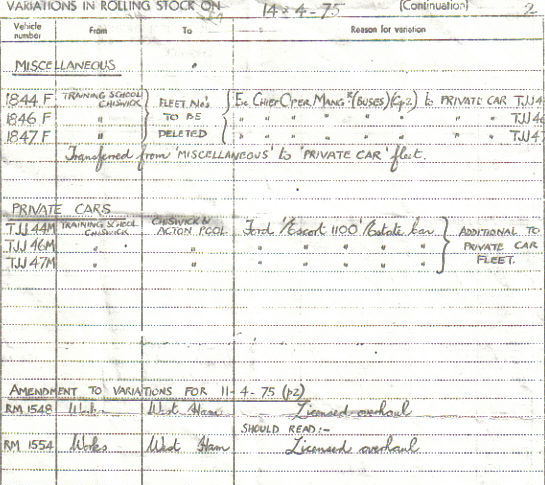 VARIATIONS IN ROLLING STOCK ON 14-4-75 (Continuation) 2
Vehicle number From To Reason for variation
MISCELLANEOUS
1844 F TRAINING SCHOOL CHISWICK FLEET No's Ex CHIEF OPER. MANGR (BUSES) (Gp2) to PRIVATE CAR TJJ4
1846 F " TO BE " " " " " " " TJJ46
1847 F " DELETED " " " " " " " TJJ47
Transferred from 'MISCELLANEOUS' to 'PRIVATE CAR' fleet.
PRIVATE CARS
TJJ 44M TRAINING SCHOOL CHISWICK CHISWICK & ACTON POOL Ford 'Escort 1100' Estate car ADDITIONAL TO
TJJ 46M " " " " " " " PRIVATE CAR
TJJ 47M " " " " " " " FLEET.
AMENDMENT TO VARIATIONS FOR 11-4-75 (p2)
RM 1548 Works West Ham Licensed overhaul
SHOULD READ:-
RM 1554 Works West Ham Licensed overhaul